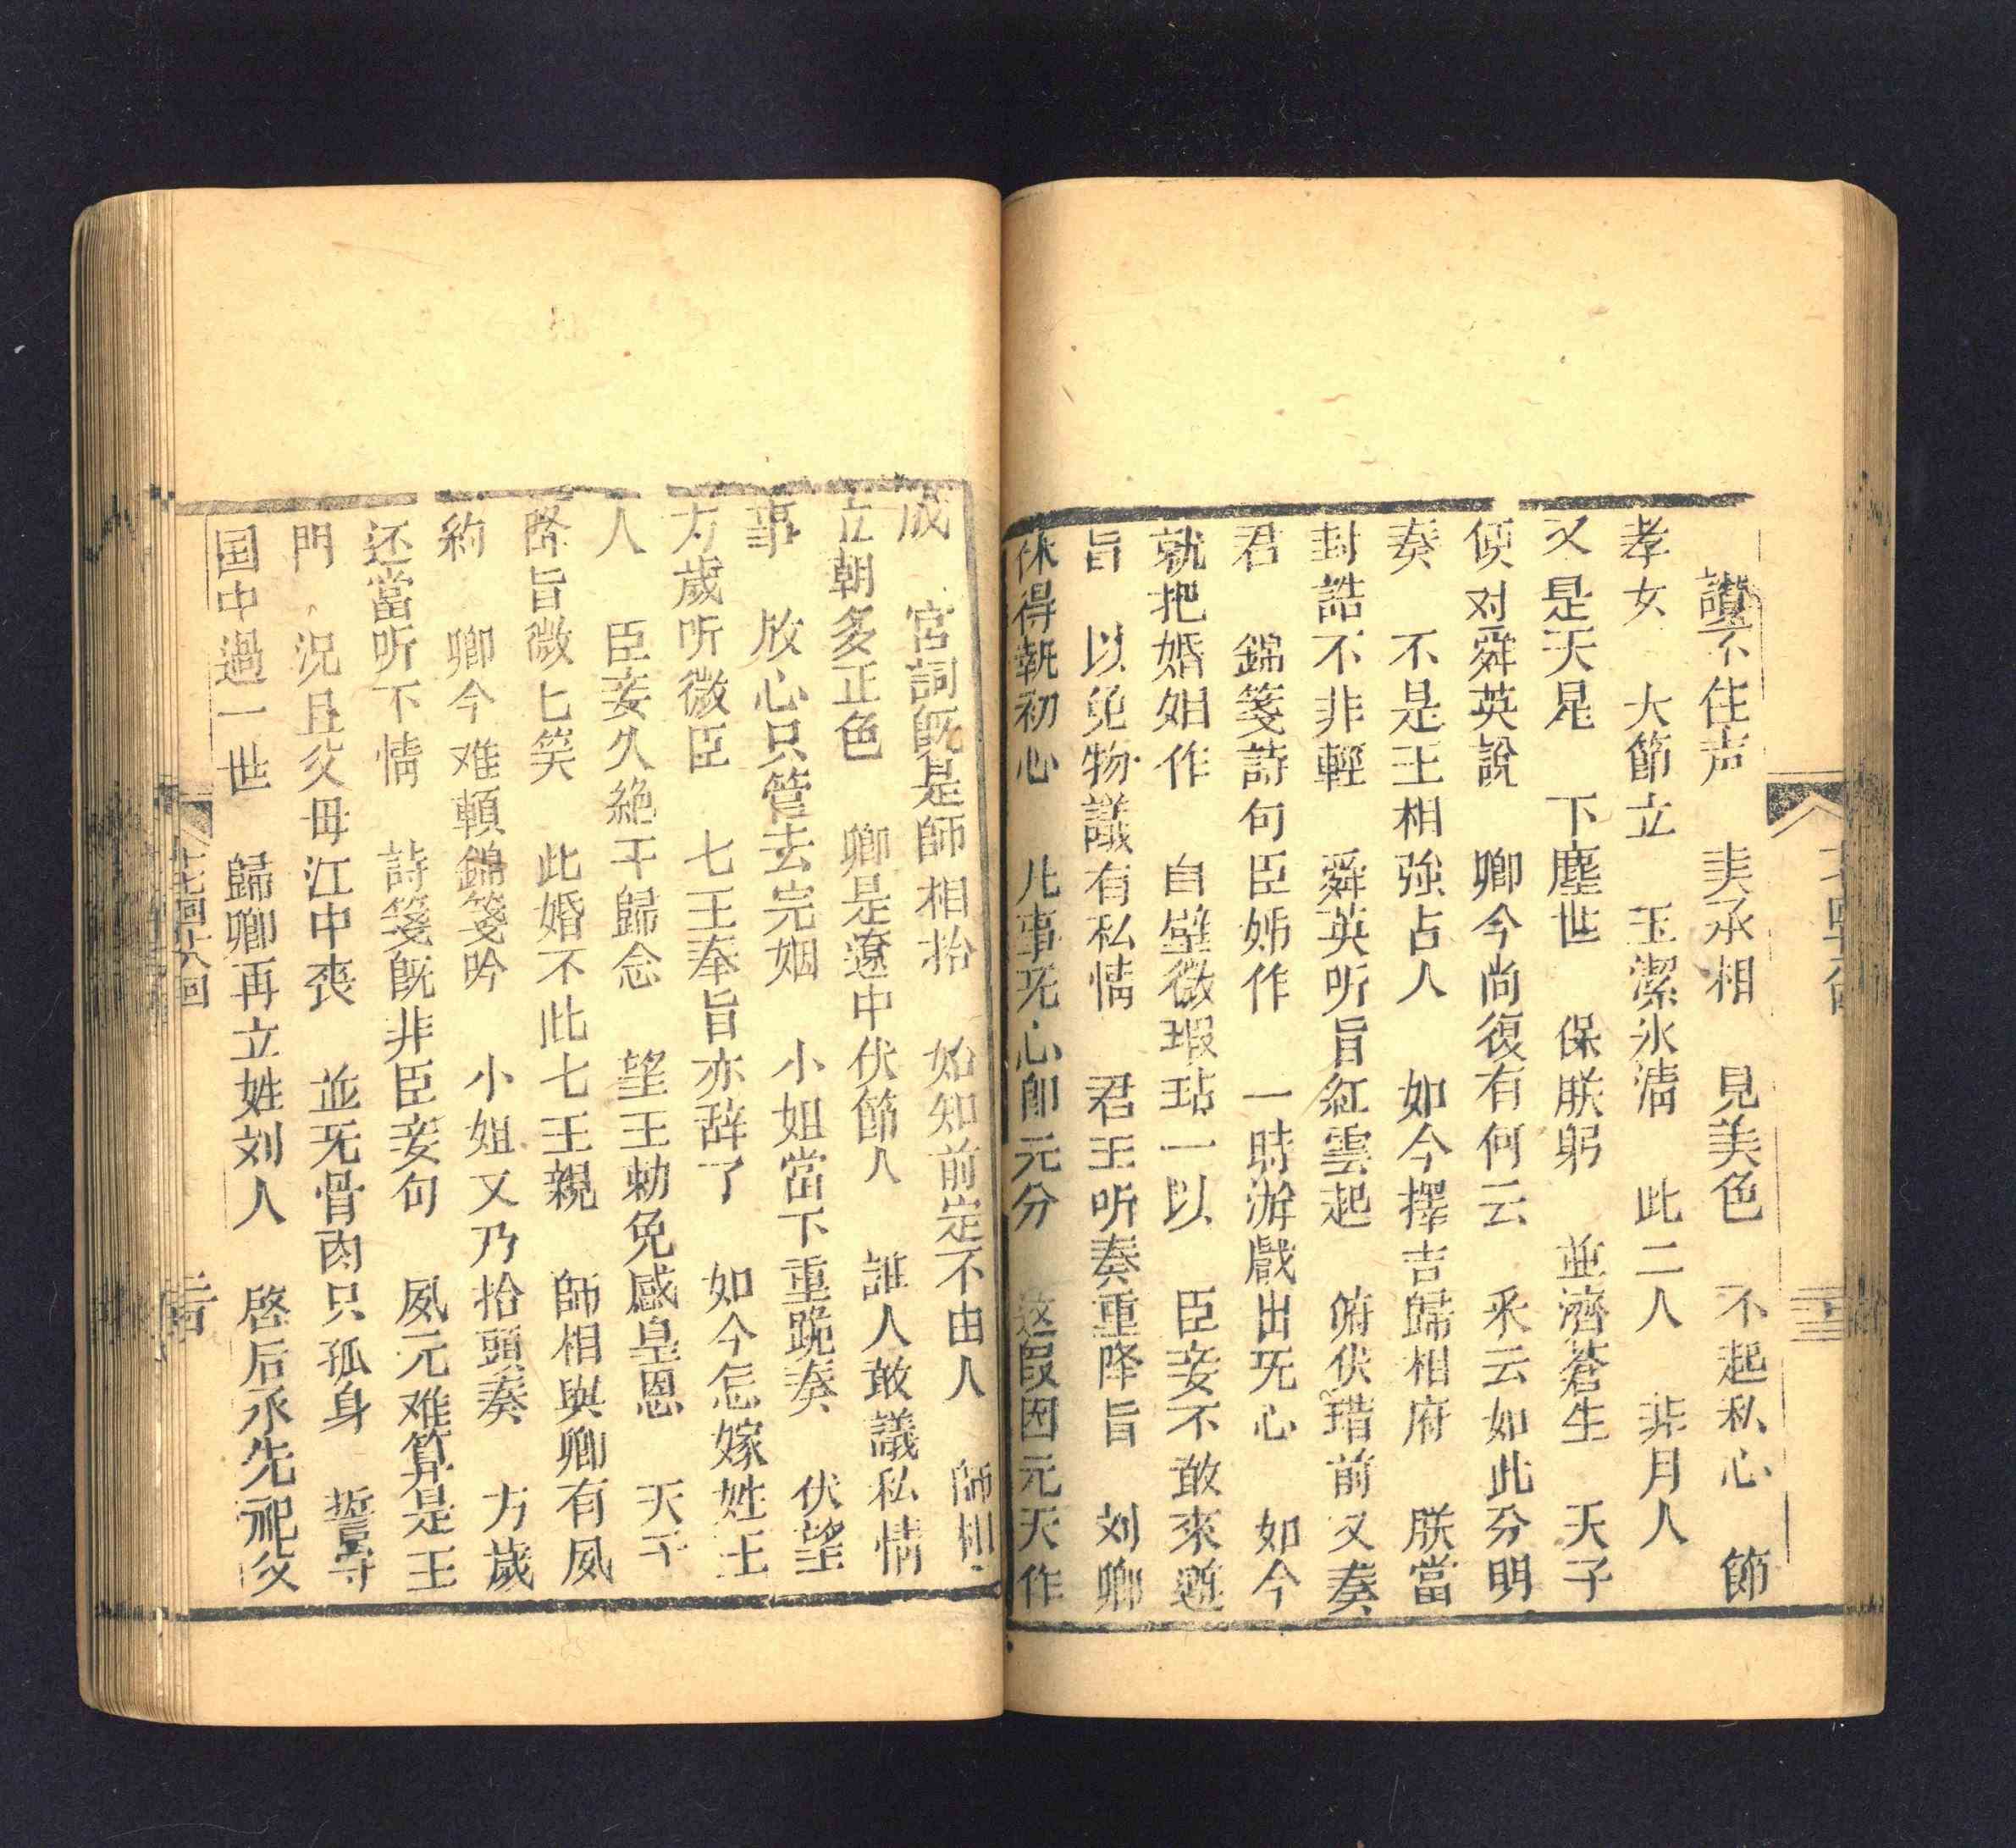 讚不住声 美丞相 見美色 不起私心 節
孝女 大節立 玉潔氷清 此二人 非月人
又是天星 下塵世 保朕躬 並濟蒼生 天子
傾对舜英說 卿今尚復有何云 釆云如此分明
奏 不是王相強占人 如今擇吉歸相府 朕當
封誥不非輕 舜英听旨紅雲起 俯伏堦前又奏
君 錦箋詩句臣姊作 一時游戲出旡心 如今
就把婚姻作 白璧微瑕玷一以 臣妾不敢來遵
旨 以免物議有私情 君王听奏重降旨 刘卿
休得執初心 凡事旡心卽元分 这叚因元天作
成 宮詞既是師相拾 始知前定不由人 師相
立朝多正色 卿是遼中伏節人 誰人敢議私情
事 放心只管去完姻 小姐當下重跪奏 伏望
万歲听微臣 七王奉旨亦辞了 如今怎嫁姓王
人 臣妾久絕于歸念 望王勅免感皇恩 天子
降旨微匕笑 此婚不比七王親 師相與卿有夙
約 卿今难頼錦箋吟 小姐又乃拾頭奏 方歲
还當听下情 詩箋既非臣妾句 夙元难算是王
門 況且父母江中丧 並旡骨肉只孤身 誓守
国中過一世 歸卿再立姓刘人 啓后承先祀父